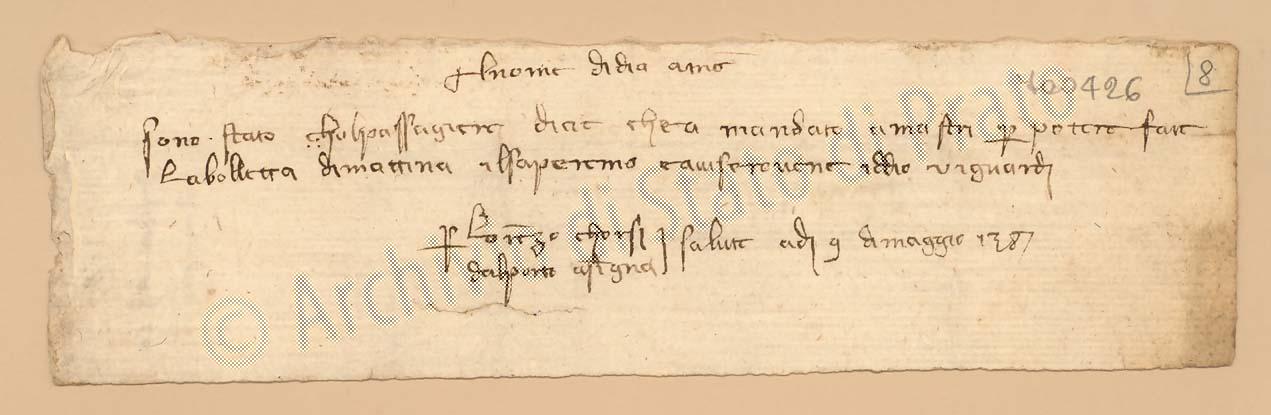 Al nome di dio ame
8
400426
sono stato chol passagiere dicie che a mandato a mastri per potere fare
la bolletta dimattina il sapremo e aviserovene iddio vi guardi
per Lorenzo chorsi salute adi 9 di maggio 1387
dal porto a signa
© Archivio di Stato di Prato